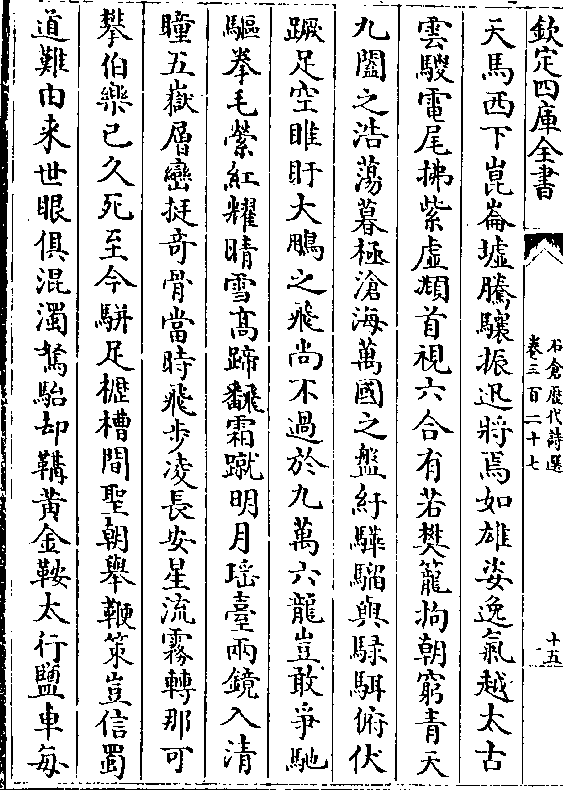 欽定四庫全書
石倉歴代詩選
卷三百二十七
十五
天馬西下崑崙墟騰驤振迅將焉如雄姿逸氣越太古
雲騣電尾拂紫虛頫首視六合有若樊籠拘朝窮青天
九闔之浩蕩暮極滄海萬國之盤紆驊騮與騄駬俯伏
蹶足空睢盱大鵬之飛尚不過於九萬六龍豈敢爭馳
驅拳毛縈紅耀晴雪髙蹄飜霜蹴明月瑶臺兩鏡入清
瞳五嶽層巒挺竒骨當時飛步凌長安星流霧轉那可
攀伯樂已久死至今駢足櫪槽間聖朝舉鞭策豈信蜀
道難由来世眼俱混濁駑駘却鞲黄金鞍太行鹽車每